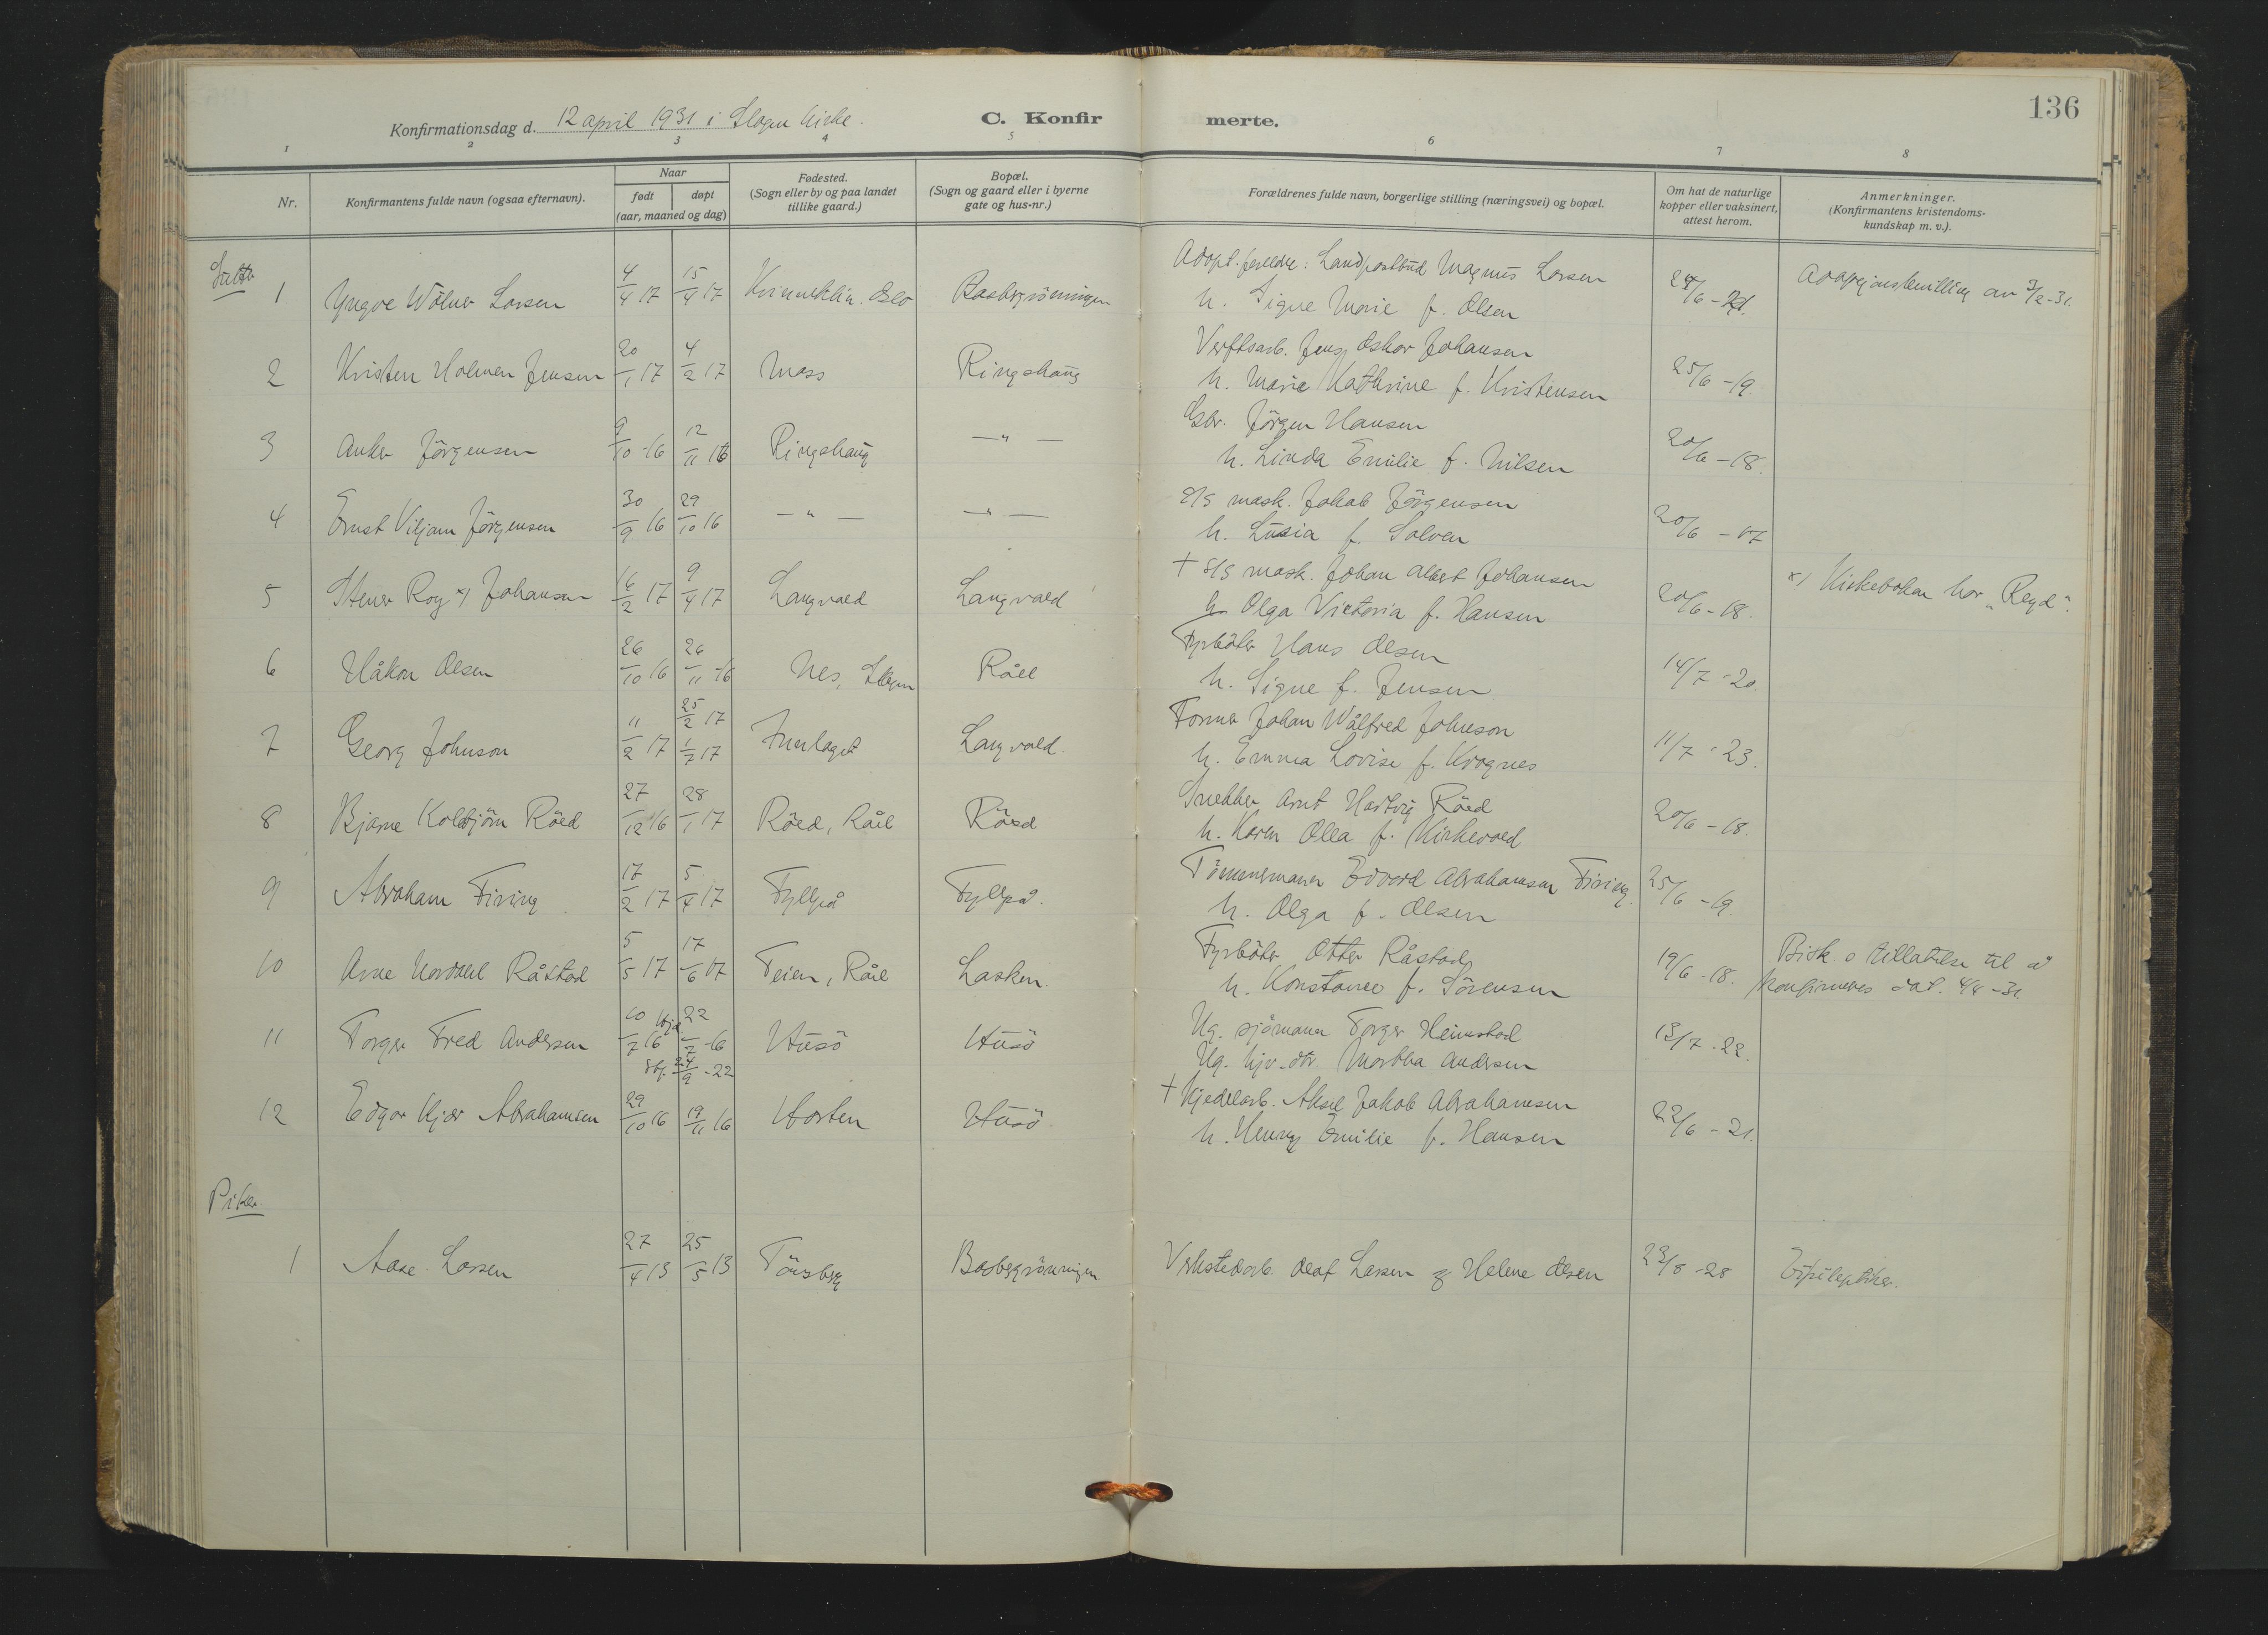 136
Konfirmationsdag d. 12 april 1931 i Slagen kirke.
C. Konfir merte.
1 2 3 4 5 6 7 8
Nr.
Konfirmantens fulde navn (ogsaa efternavn).
Naar
født døpt
(aar, maaned og dag)
Fødested.
(Sogn eller by og paa landet
tillike gaard.)
Bopæl.
(Sogn og gaard eller i byerne
gate og hus-nr.)
Forældrenes fulde navn, borgerlige stilling (næringsvei) og bopæl.
Om hat de naturlige
kopper eller vaksinert,
attest herom.
Anmerkninger.
(Konfirmantens kristendoms-
kundskap m. v.).
Gutter
1 Yngve Wølner Larsen 4/4 17 15/4 17 Kvinneklin. Oslo Basbergrønningen
Adopt. foreldre: Landpostbud Magnus Larsen
h. Signe Marie f. Olsen
24/6 - 21.
Adopsjonsbevilling av 3/2-31.
2 Kristen Holmen Jensen 20/1 17 4/2 17 Moss Ringshaug
Verftsarb. Jens Oskar Johansen
h. Marie Kathrine f. Kristensen
25/6 - 19.
3 Anker Jörgensen 9/10 -16 12/11 16 Ringshaug — " —
Gbr. Jörgen Hansen
h. Linda Emilie f. Nilsen
20/6 - 18.
4 Ernst Viljam Jörgensen 30/9 16 29/10 16 — " — — " —
S/S mask. Jakob Jörgensen
h. Lusia f. Solven
20/6 - 07
5 Stener Roy x) Johansen 16/2 17 9/4 17 Langvald Langvald
+ S/S mask. Johan Albert Johansen
h. Olga Victoria f. Hansen
20/6 - 18.
x) Kirkeboken har "Reyd".
6 Håkon Olsen 26/10 16 26/11 -16 Nes, Slagen Råel
Fyrböter Hans Olsen
h. Signe f. Jensen
14/7 - 20.
7 Georg Johnson 11/2 17 25/2 17 1/7 17 Langvald.
Former Johan Wålfred Johnson
h. Emma Lovise f. Krognes
11/7 - 23.
8 Bjarne Kolbjörn Röed 27/12 16 28/1 17 Röed, Råel Röed
Snekker Arnt Hartvig Röed
h. Karen Olea f. Kirkevold
20/6 - 18.
9 Abraham Firing 17/2 17 5/4 17 Fyllpå Fyllpå.
Tömmermann Edvard Abrahamsen Firing.
h. Olga f. Olsen
25/6 - 19.
10 Arne Nordahl Råstad 5/5 17 17/6 17 Teien, Råel Lasken.
Fyrböter Otter Råstad
h. Konstanse f. Sörensen
19/6 - 18.
Bisk. s tillatelse til å
konfirmeres dat. 4/4 - 31.
11 Torger Fred Andersen 10/7 16 Hjd. 22/7 -16 Husö Husö
Stf. 24/9 - 22
Ug. sjömann Torger Heimstad
Ug. hjv. dtr. Martha Andersen
13/7 - 22.
12 Edgar Kjær Abrahamsen 29/10 16 19/11 16 Horten Husö.
+ Kjedelarb. Aksel Jakob Abrahamsen
h. Henny Emilie f. Hansen
22/6 - 21.
Piker
1 Aase Larsen 27/4 13 25/5 13 Tönsberg Basbergrönningen
Verkstedarb. Olaf Larsen og Helene Olsen
23/8 - 28
Epileptiker.